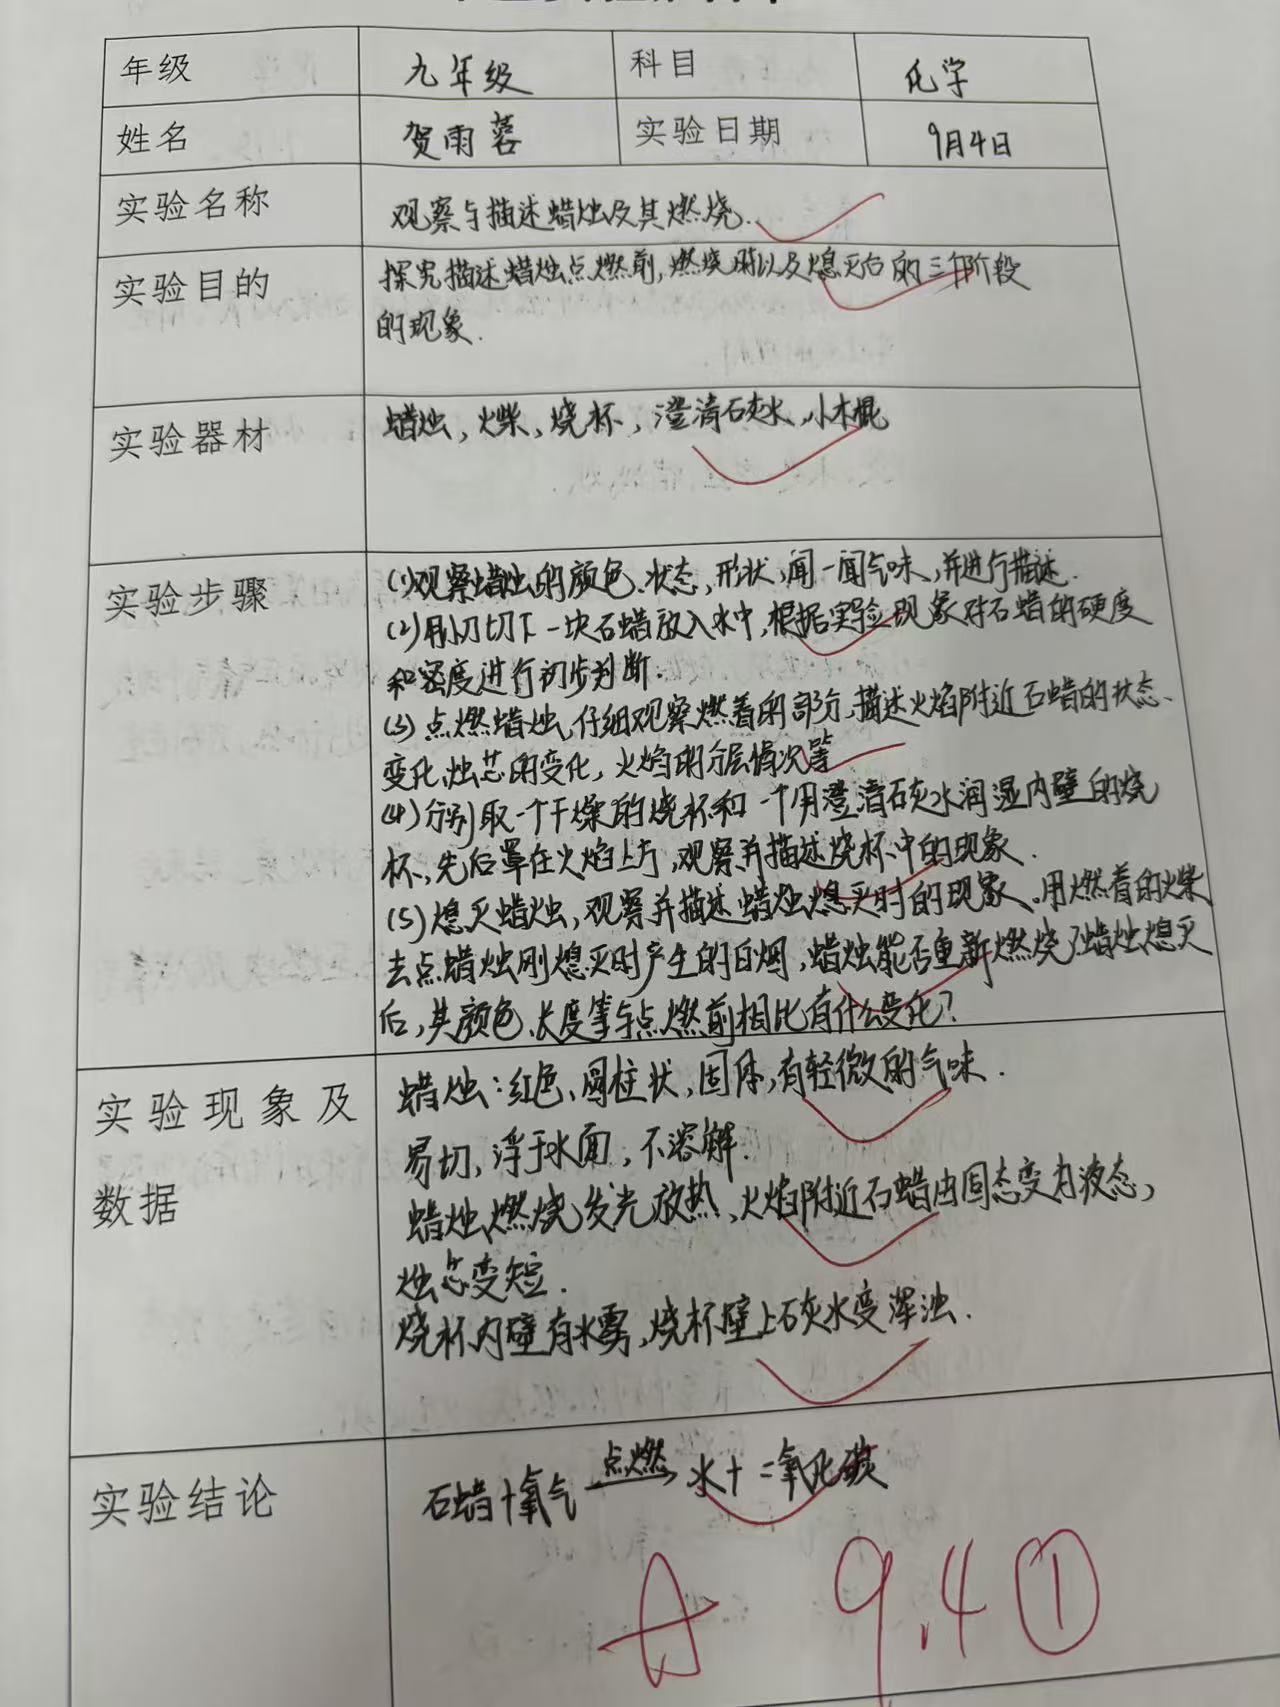 年级 九年级 科目 化学
姓名 贺雨蓉 实验日期 9月4日
实验名称 观察与描述蜡烛及其燃烧.
实验目的 探究描述蜡烛点燃前,燃烧时以及熄灭后的三个阶段
的现象.
实验器材 蜡烛,火柴、烧杯,澄清石灰水、小木棍
实验步骤 (1)观察蜡烛的颜色、状态,形状,闻一闻气味,并进行描述.
(2)用小刀切下一块石蜡放入水中,根据实验现象对石蜡的硬度
和密度进行初步判断.
(3)点燃蜡烛,仔细观察燃着的部分,描述火焰附近石蜡的状态、
变化,烛芯的变化,火焰的分层情况等
(4)分别取一个干燥的烧杯和一个用澄清石灰水润湿内壁的烧
杯,先后罩在火焰上方,观察并描述烧杯中的现象.
(5)熄灭蜡烛,观察并描述蜡烛熄灭时的现象。用燃着的火柴
去点蜡烛刚熄灭时产生的白烟,蜡烛能否重新燃烧?蜡烛熄灭
后,其颜色、长度等与点燃前相比有什么变化?
实验现象及
数据
蜡烛:红色、圆柱状,固体,有轻微的气味.
易切,浮于水面,不溶解.
蜡烛燃烧发光放热、火焰附近石蜡由固态变为液态,
烛芯变短.
烧杯内壁有水雾,烧杯壁上石灰水变浑浊.
实验结论 石蜡+氧气 点燃→ 水+二氧化碳
A 9.4 ①